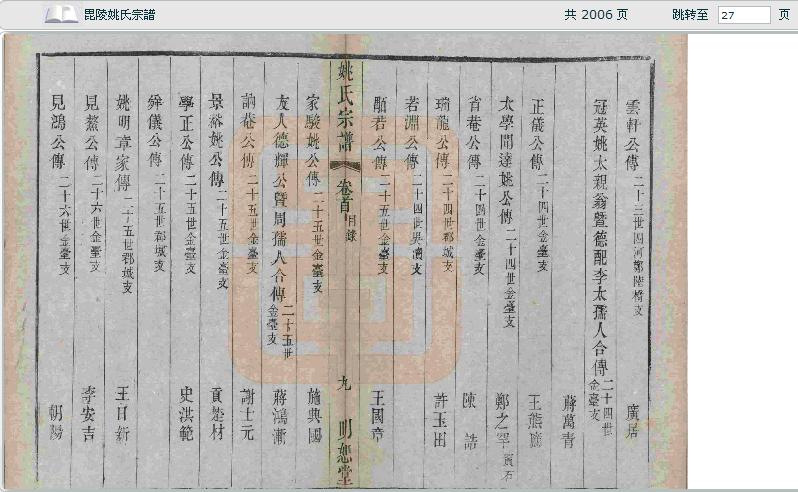 毘陵姚氏宗譜
共 2006 页
跳转至 27 页
雲軒公傳 二十三世四河鄭陸橋支 廣居
冠英姚太親翁暨德配李太孺人合傳 二十四世金臺支 蔣萬青
正儀公傳 二十四世金臺支 王熊
太學聞達姚公傳 二十四世金臺支 鄭之罕
省菴公傳 二十四世金臺支 陳誥
瑞龍公傳 二十四世郡城支 許玉田
若淵公傳 二十四世吳瀆支
顒若公傳 二十五世金臺支 王國章
姚氏宗譜 卷首 目錄 九 明恕堂
家駿姚公傳 二十五世金臺支 施典國
友人德輝公暨周孺人合傳 二十五世金臺支 蔣鴻漸
訥菴公傳 二十五世金臺支 謝士元
景裕姚公傳 二十五世金臺支 貢楚材
學正公傳 二十五世金臺支 史洪範
舜儀公傳 二十五世郡城支
姚明章家傳 二十五世郡城支 王日新
見鰲公傳 二十六世金臺支 李安吉
見鴻公傳 二十六世金臺支 朝陽